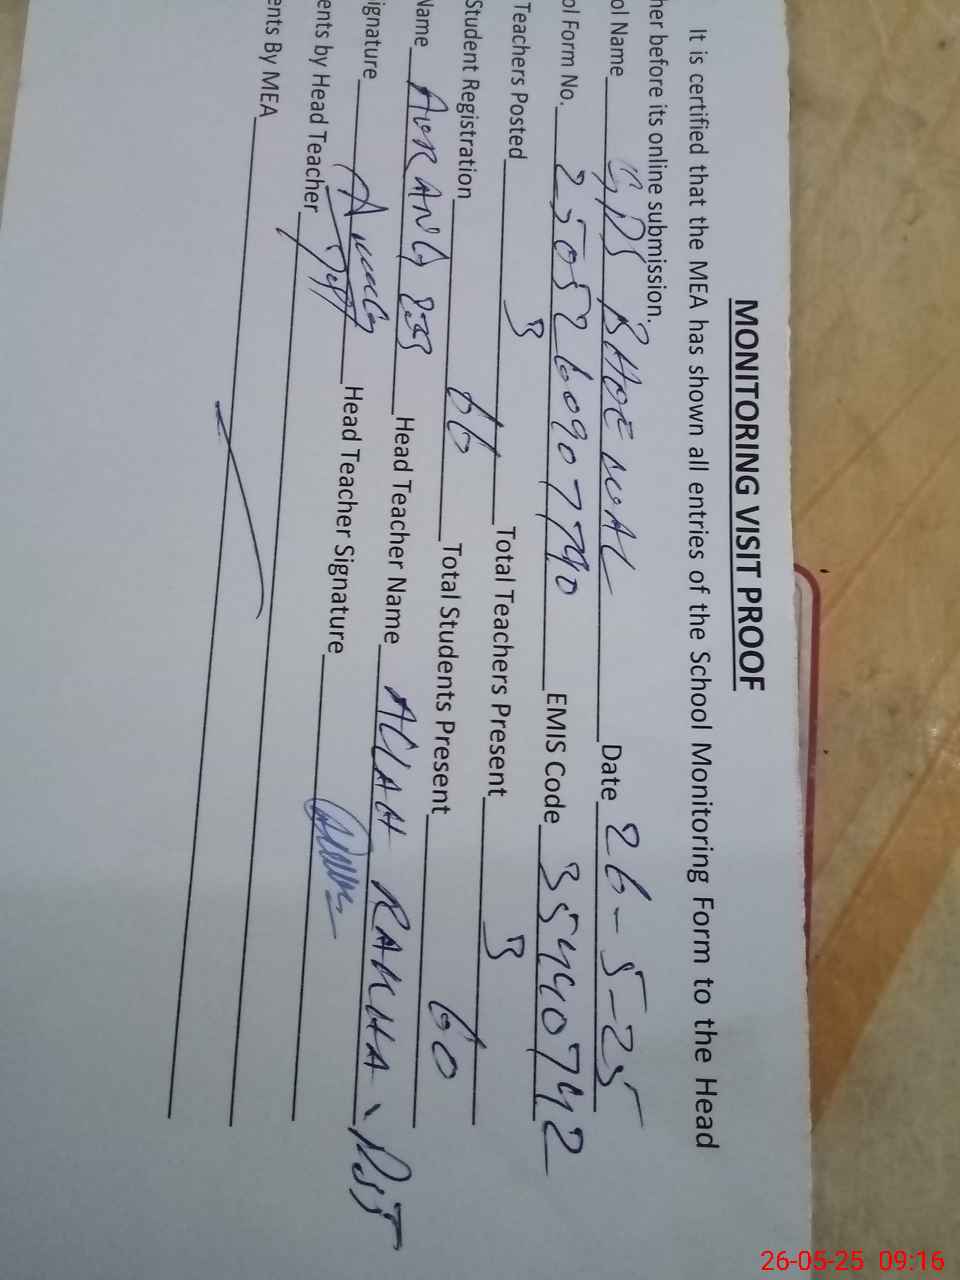 MONITORING VISIT PROOF
It is certified that the MEA has shown all entries of the School Monitoring Form to the Head
her before its online submission.
ol Name GPS Date 26-5-25
ol Form No. 2505260907790 EMIS Code 35440742
Teachers Posted 3 Total Teachers Present 3
Student Registration 66 Total Students Present 60
Name AURANG Head Teacher Name ALLAH RAKHA, PST
ignature Head Teacher Signature
ents by Head Teacher
ents By MEA
26-05-25 09:16